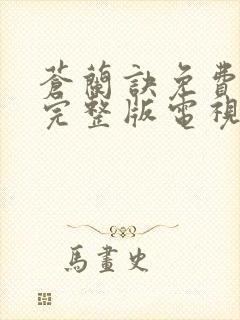 蒼蘭訣免費
完整版電視
馬畫史